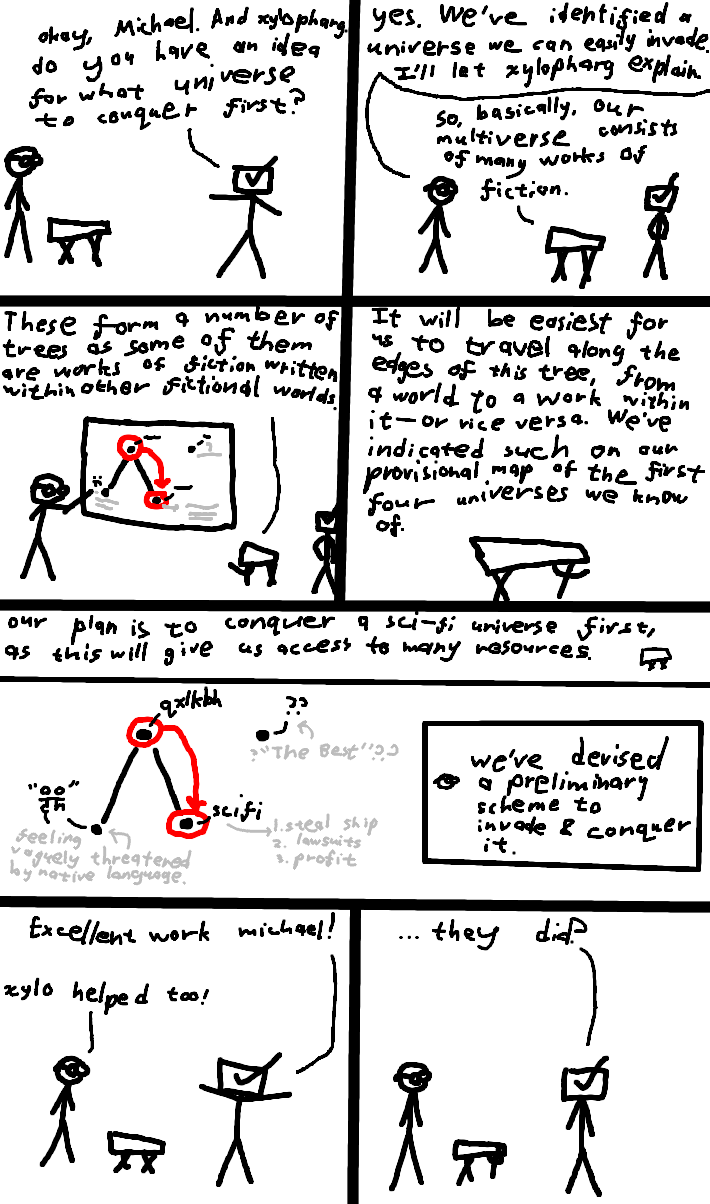 okay, Michael. And xylopharg.
do you have an idea
for what universe
to conquer first?
yes. We've identified a
universe we can easily invade.
I'll let xylopharg explain
so, basically, our
multiverse consists
of many works of
fiction.
These form a number of
trees as some of them
are works of fiction written
within other fictional worlds.
It will be easiest for
us to travel along the
edges of this tree, from
a world to a work within
it—or vice versa. We've
indicated such on our
provisional map of the first
four universes we know
of.
our plan is to conquer a sci-fi universe first,
as this will give us access to many resources.
qxlkbh
??
?"The Best"??
scifi
feeling
vaguely threatened
by native language.
1. steal ship
2. lawsuits
3. profit
we've devised
a preliminary
scheme to
invade & conquer
it.
Excellent work michael!
xylo helped too!
...they did?